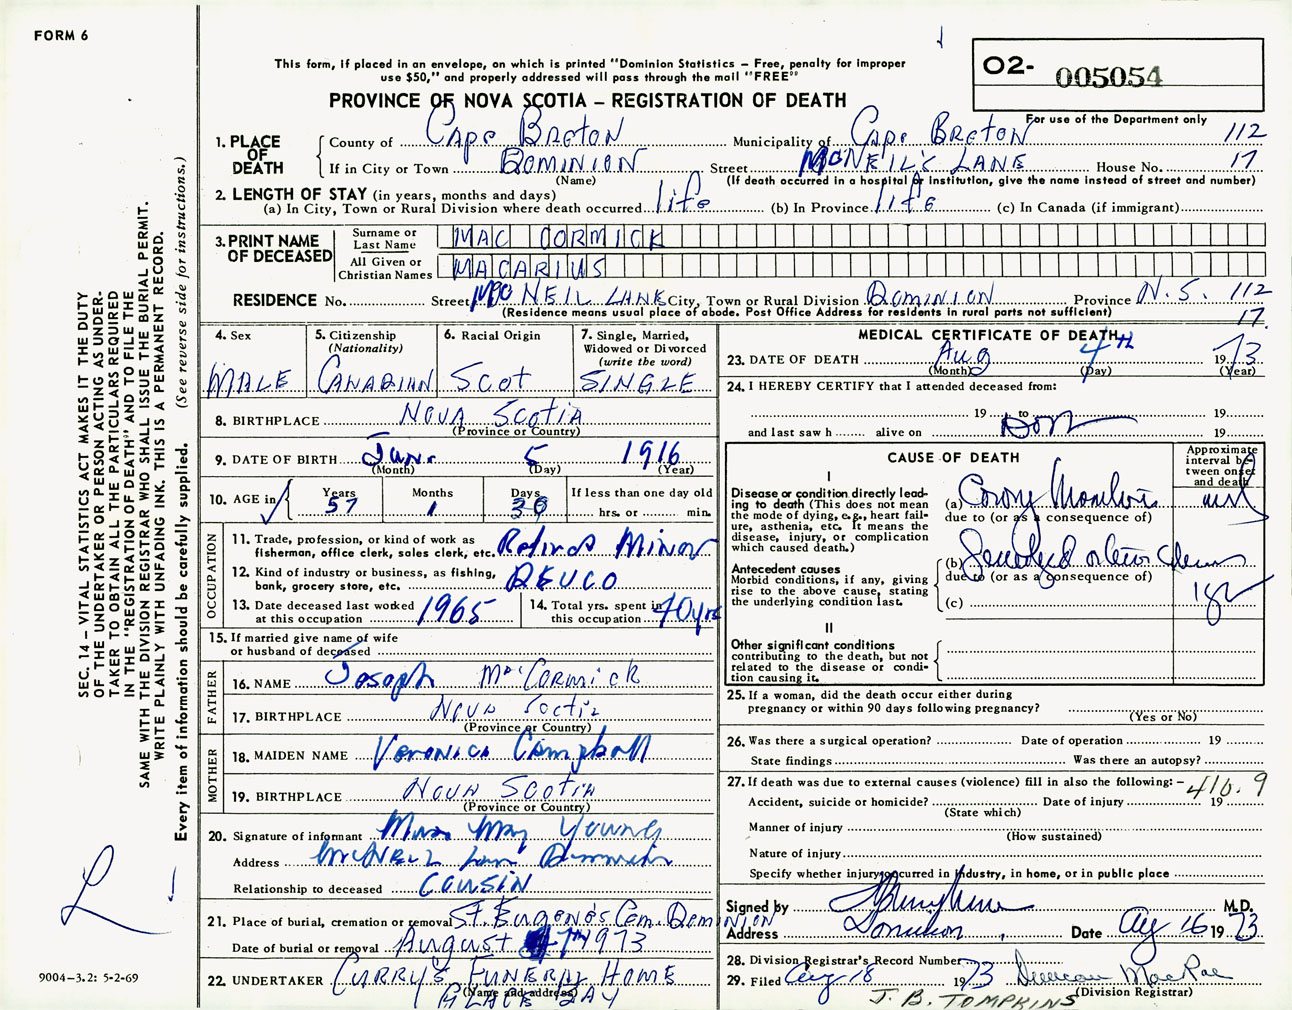 FORM 6
This form, if placed in an envelope, on which is printed "Dominion Statistics – Free, penalty for improper
use $50," and properly addressed will pass through the mail "FREE"
O2- 005054
PROVINCE OF NOVA SCOTIA – REGISTRATION OF DEATH
For use of the Department only
1. PLACE OF DEATH
County of Cape Breton Municipality of Cape Breton 112
If in City or Town DOMINION Street McNEIL'S LANE House No. 17
(Name) (If death occurred in a hospital or institution, give the name instead of street and number)
2. LENGTH OF STAY (in years, months and days)
(a) In City, Town or Rural Division where death occurred life (b) In Province life (c) In Canada (if immigrant)
3. PRINT NAME OF DECEASED
Surname or Last Name MAC CORMICK
All Given or Christian Names MACARIUS
RESIDENCE No. Street Mc NEIL LANE City, Town or Rural Division DOMINION Province N.S. 112
(Residence means usual place of abode. Post Office Address for residents in rural parts not sufficient) 17
4. Sex MALE
5. Citizenship (Nationality) CANADIAN
6. Racial Origin SCOT
7. Single, Married, Widowed or Divorced (write the word) SINGLE
8. BIRTHPLACE NOVA SCOTIA
(Province or Country)
9. DATE OF BIRTH 5 1916
(Month) (Day) (Year)
10. AGE in Years 57 Months 1 Days 30 If less than one day old
hrs. or min.
OCCUPATION
11. Trade, profession, or kind of work as
fisherman, office clerk, sales clerk, etc. Retired Miner
12. Kind of industry or business, as fishing,
bank, grocery store, etc. DEVCO
13. Date deceased last worked
at this occupation 1965
14. Total yrs. spent in
this occupation 40 yrs
15. If married give name of wife
or husband of deceased
FATHER
16. NAME Joseph MacCormick
17. BIRTHPLACE Nova Scotia
(Province or Country)
MOTHER
18. MAIDEN NAME Veronica Campbell
19. BIRTHPLACE Nova Scotia
(Province or Country)
20. Signature of informant May Young
Address McNeil Lane Dominion
Relationship to deceased COUSIN
21. Place of burial, cremation or removal St. Eugene's Cem. Dominion
Date of burial or removal August 7th 1973
22. UNDERTAKER CURRY'S FUNERAL HOME
(Name and address) GLACE BAY
MEDICAL CERTIFICATE OF DEATH
23. DATE OF DEATH Aug 4th 1973
(Month) (Day) (Year)
24. I HEREBY CERTIFY that I attended deceased from:
19 to 19
and last saw h alive on 19
CAUSE OF DEATH
Approximate interval between onset and death
I
Disease or condition directly leading to death (This does not mean the mode of dying, e.g., heart failure, asthenia, etc. It means the disease, injury, or complication which caused death.)
(a)
due to (or as a consequence of)
Antecedent causes
Morbid conditions, if any, giving rise to the above cause, stating the underlying condition last.
(b)
due to (or as a consequence of)
(c)
II
Other significant conditions
contributing to the death, but not related to the disease or condition causing it.
25. If a woman, did the death occur either during
pregnancy or within 90 days following pregnancy?
(Yes or No)
26. Was there a surgical operation? Date of operation 19
State findings Was there an autopsy?
27. If death was due to external causes (violence) fill in also the following: – 410.9
Accident, suicide or homicide? Date of injury 19
(State which)
Manner of injury
(How sustained)
Nature of injury
Specify whether injury occurred in industry, in home, or in public place
Signed by M.D.
Address Dominion Date Aug 16 1973
28. Division Registrar's Record Number
29. Filed Aug 18 1973 Duncan MacRae
(Division Registrar)
J. B. TOMPKINS
SEC. 14 – VITAL STATISTICS ACT MAKES IT THE DUTY
OF THE UNDERTAKER OR PERSON ACTING AS UNDER-
TAKER TO OBTAIN ALL THE PARTICULARS REQUIRED
IN THE "REGISTRATION OF DEATH" AND TO FILE THE
SAME WITH THE DIVISION REGISTRAR WHO SHALL ISSUE THE BURIAL PERMIT.
WRITE PLAINLY WITH UNFADING INK. THIS IS A PERMANENT RECORD.
Every item of information should be carefully supplied. (See reverse side for instructions.)
9004–3.2: 5-2-69